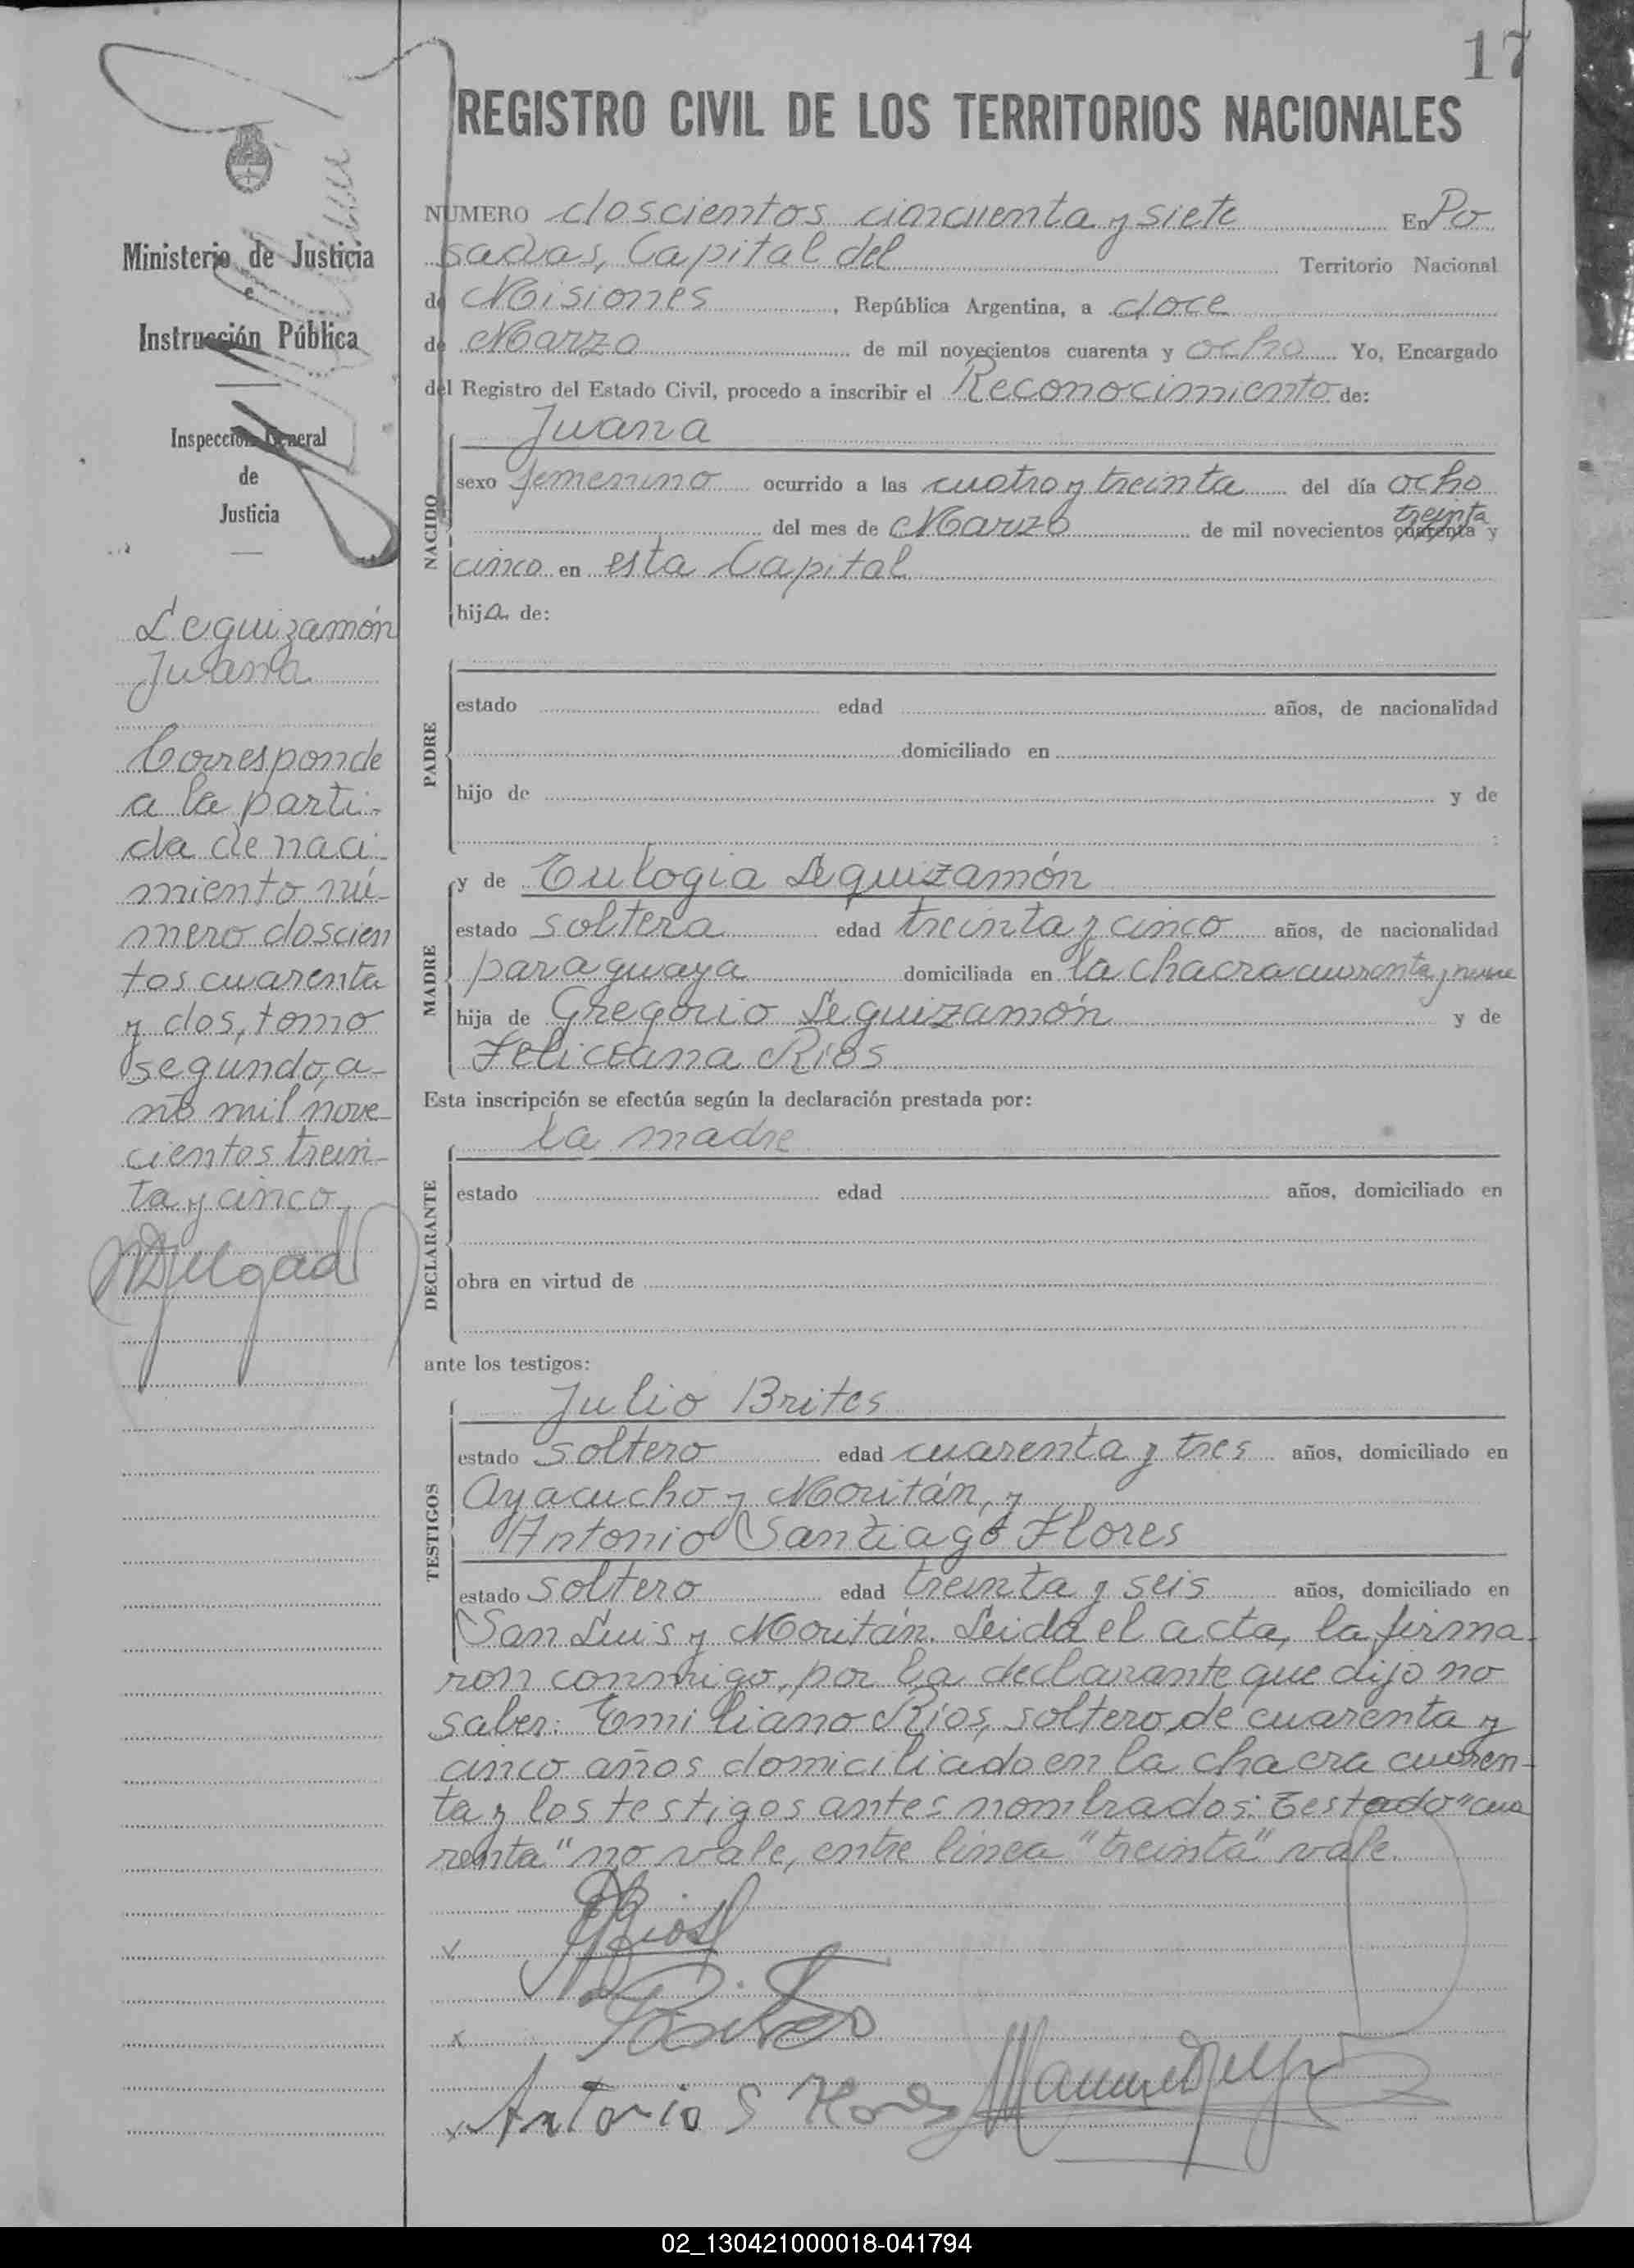 17
REGISTRO CIVIL DE LOS TERRITORIOS NACIONALES
Ministerio de Justicia
e
Instrucción Pública
Inspección General
de
Justicia
Leguizamón
Juana
Corresponde
a la parti-
da de naci-
miento nú-
mero doscien
tos cuarenta
y dos, tomo
segundo, a-
ño mil nove-
cientos trein-
ta y cinco
NUMERO doscientos cincuenta y siete En Po
sadas, Capital del Territorio Nacional
de Misiones, República Argentina, a doce
de Marzo de mil novecientos cuarenta y ocho Yo, Encargado
del Registro del Estado Civil, procedo a inscribir el Reconocimiento de:
NACIDO
Juana
sexo femenino ocurrido a las cuatro y treinta del día ocho
treinta
del mes de Marzo de mil novecientos cuarenta y
cinco en esta Capital
hija de:
PADRE
estado edad años, de nacionalidad
domiciliado en
hijo de y de
MADRE
y de Eulogia Leguizamón
estado soltera edad treinta y cinco años, de nacionalidad
paraguaya domiciliada en la chacra cuarenta y nueve
hija de Gregorio Leguizamón y de
Feliciana Ríos
Esta inscripción se efectúa según la declaración prestada por:
DECLARANTE
la madre
estado edad años, domiciliado en
obra en virtud de
ante los testigos:
TESTIGOS
Julio Brites
estado soltero edad cuarenta y tres años, domiciliado en
Ayacucho y Moritán, y
Antonio Santiago Flores
estado soltero edad treinta y seis años, domiciliado en
San Luis y Moritán. Leida el acta, la firma-
ron conmigo, por la declarante que dijo no
saber: Emiliano Ríos, soltero, de cuarenta y
cinco años domiciliado en la chacra cuaren-
ta y los testigos antes nombrados: Testado "cua
renta" no vale, entre linea "treinta" vale.
Ríos
Brites
Antonio S Flores
02_130421000018-041794